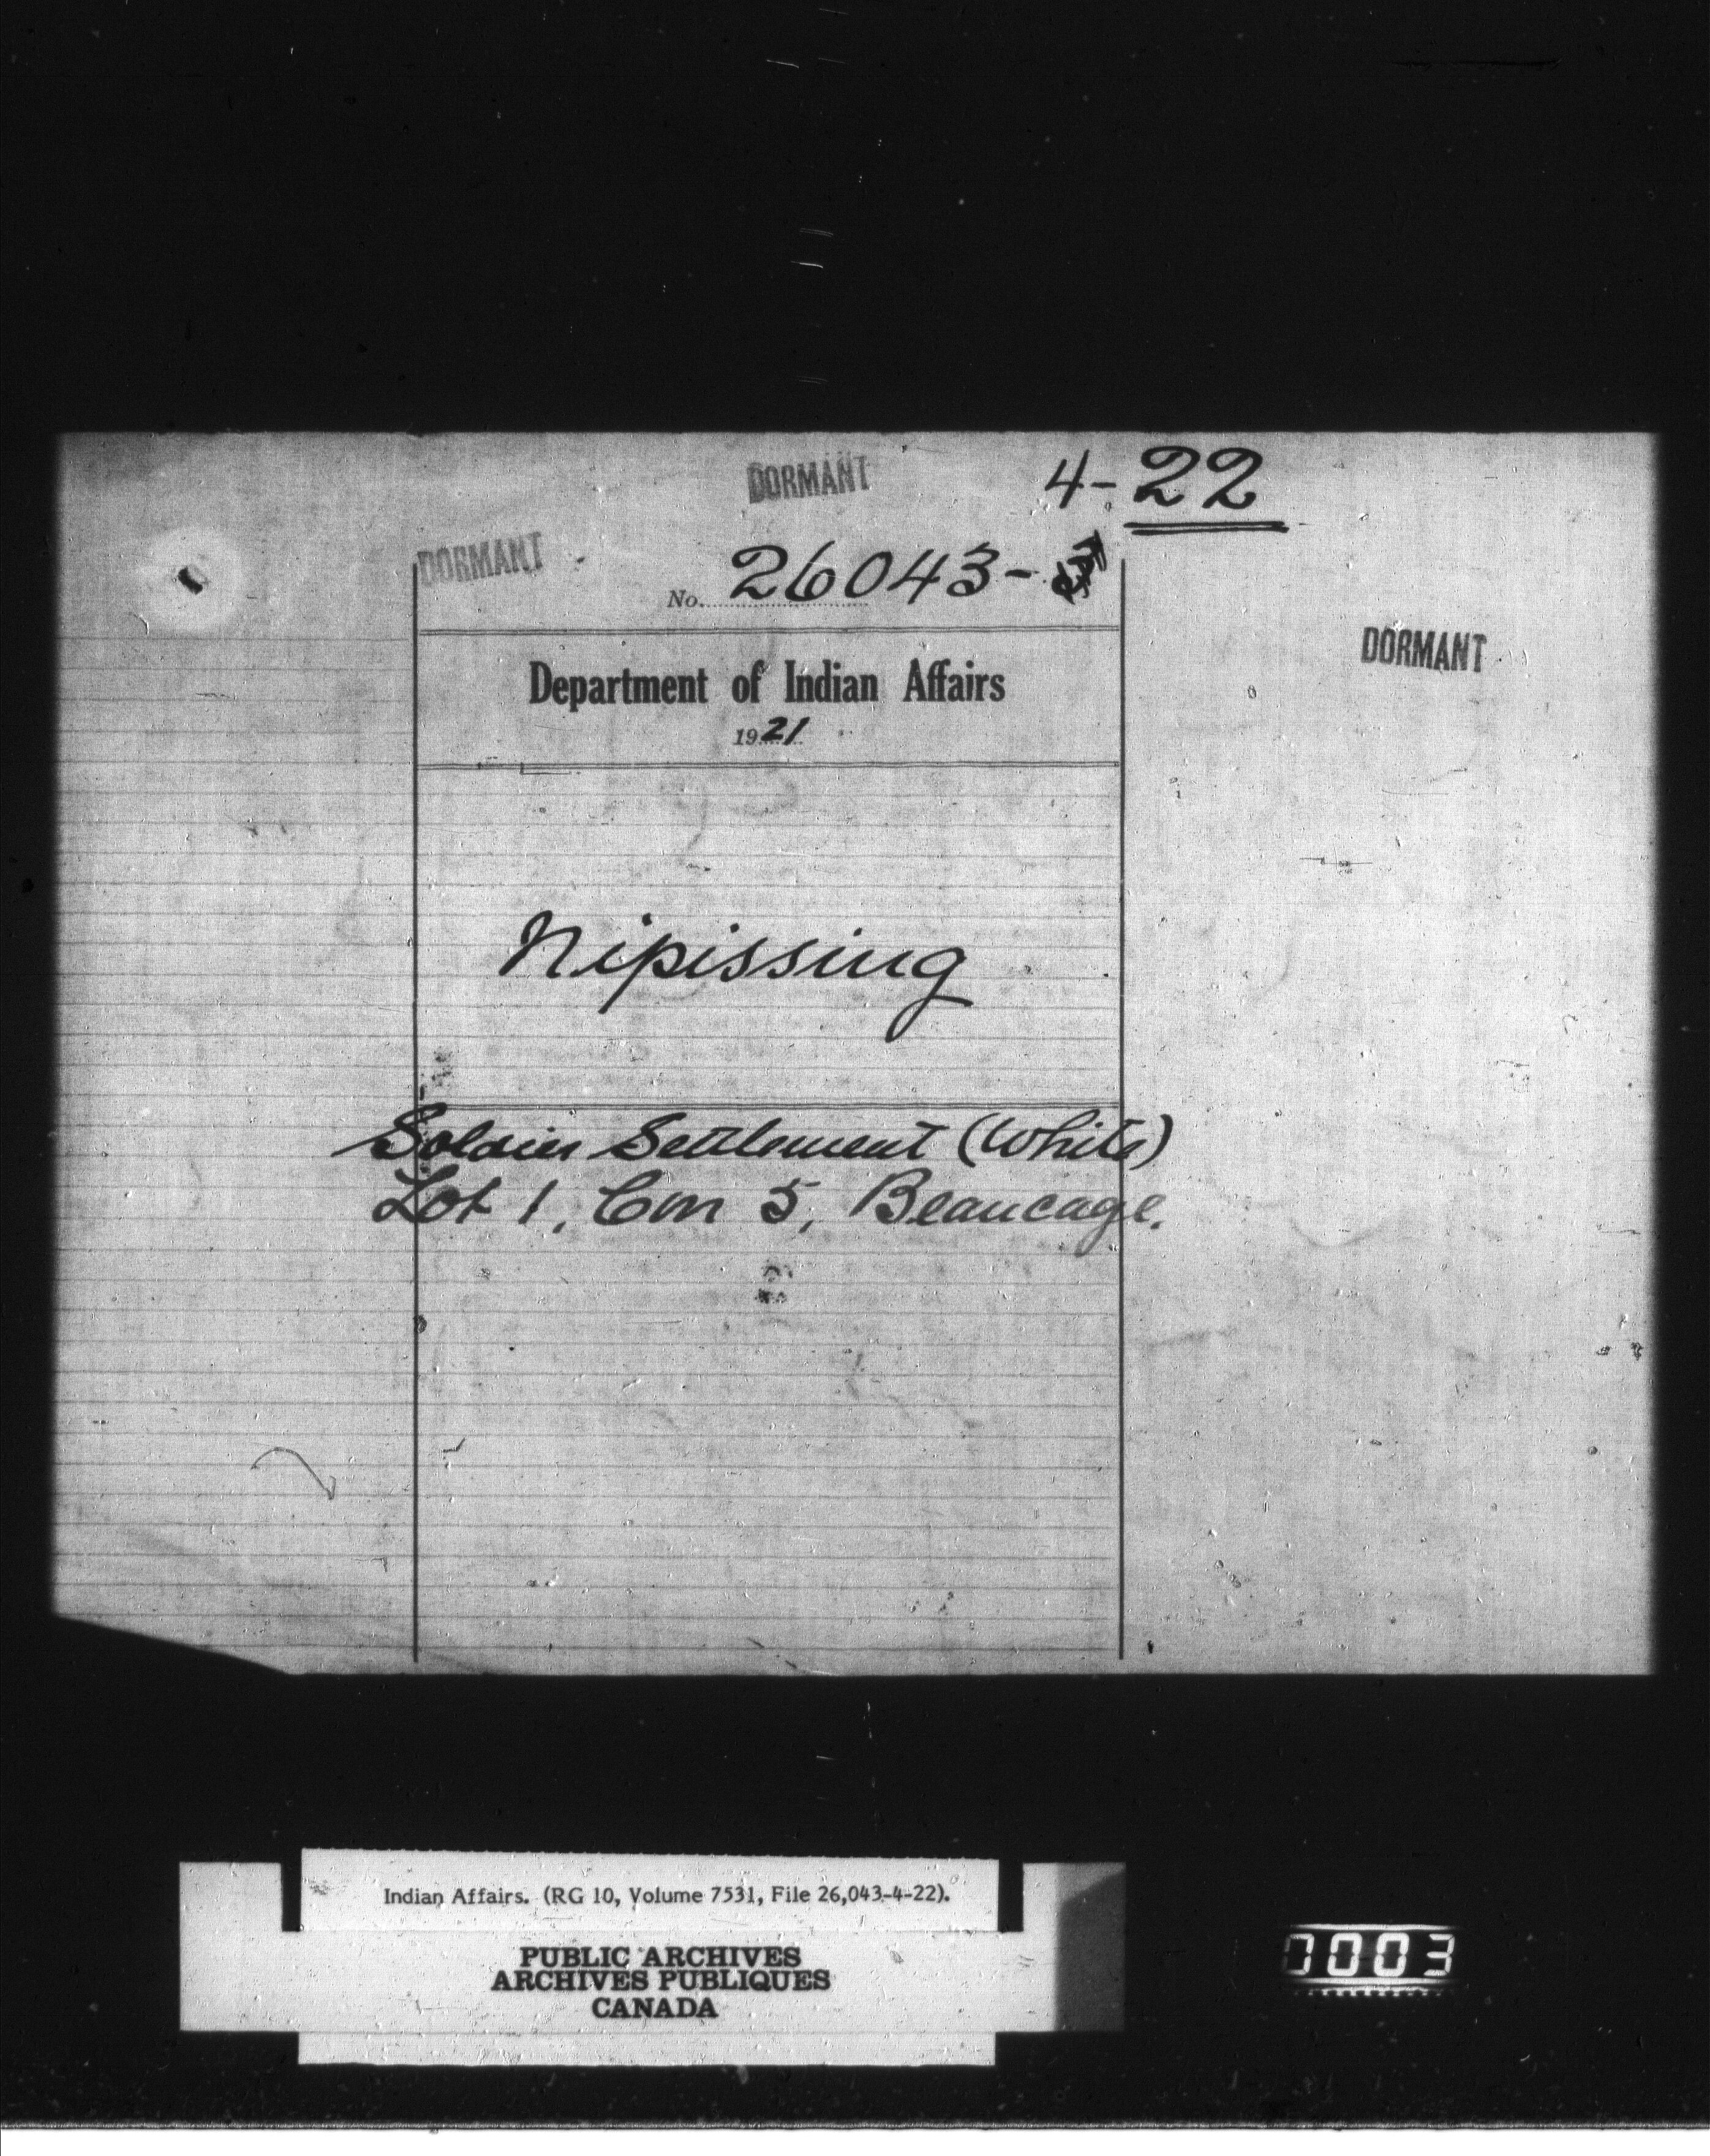 DORMANT
4-22
DORMANT
No. 26043-
DORMANT
Department of Indian Affairs
1921
Nipissing
Soldier Settlement (White)
Lot 1, Con 5, Beaucage.
Indian Affairs. (RG 10, Volume 7531, File 26,043-4-22).
PUBLIC ARCHIVES
ARCHIVES PUBLIQUES
CANADA
0003